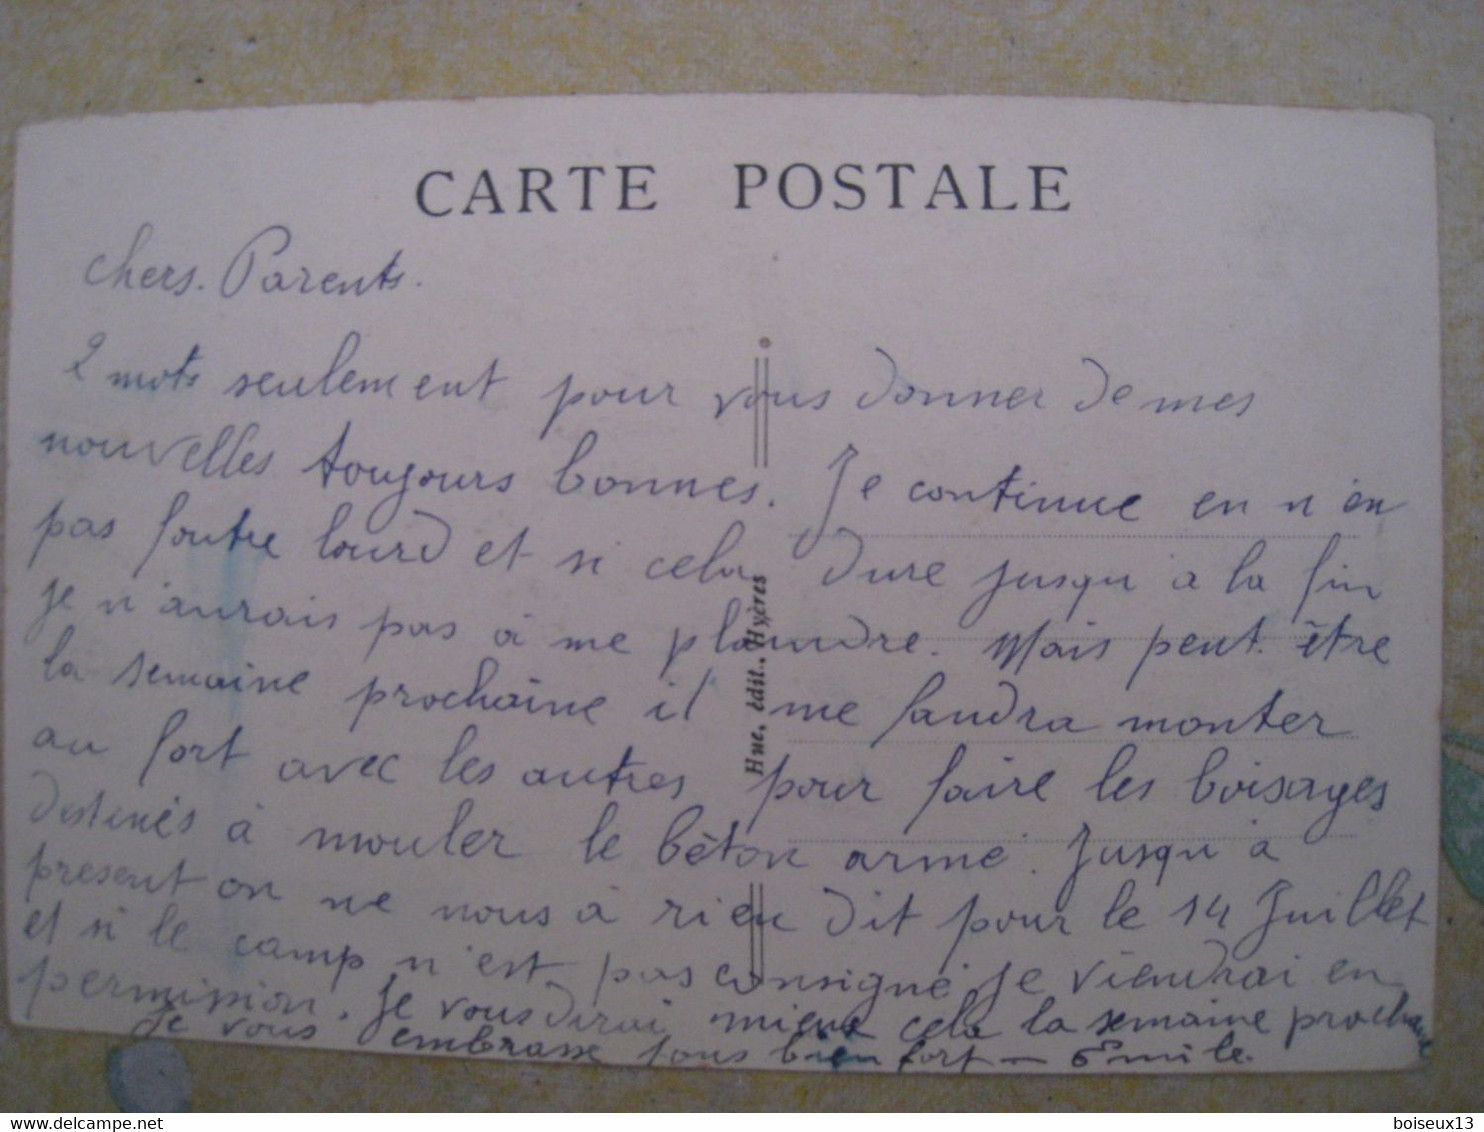 CARTE POSTALE
chers. Parents.
2 mots seulement pour vous donner de mes
nouvelles toujours bonnes. Je continue en n'en
pas foutre lourd et si cela dure jusqu'à la fin
je n'aurais pas à me plaindre. Mais peut être
la semaine prochaine il me faudra monter
au fort avec les autres pour faire les boisages
destinés à mouler le bêton armé. Jusqu'à
present on ne nous à rien dit pour le 14 Juillet.
et si le camp n'est pas consigné je viendrai en
permission. Je vous dirai mieux cela la semaine prochaine
Je vous embrasse tous bien fort — Emile.
Hue, édit., Hyères
boiseux13